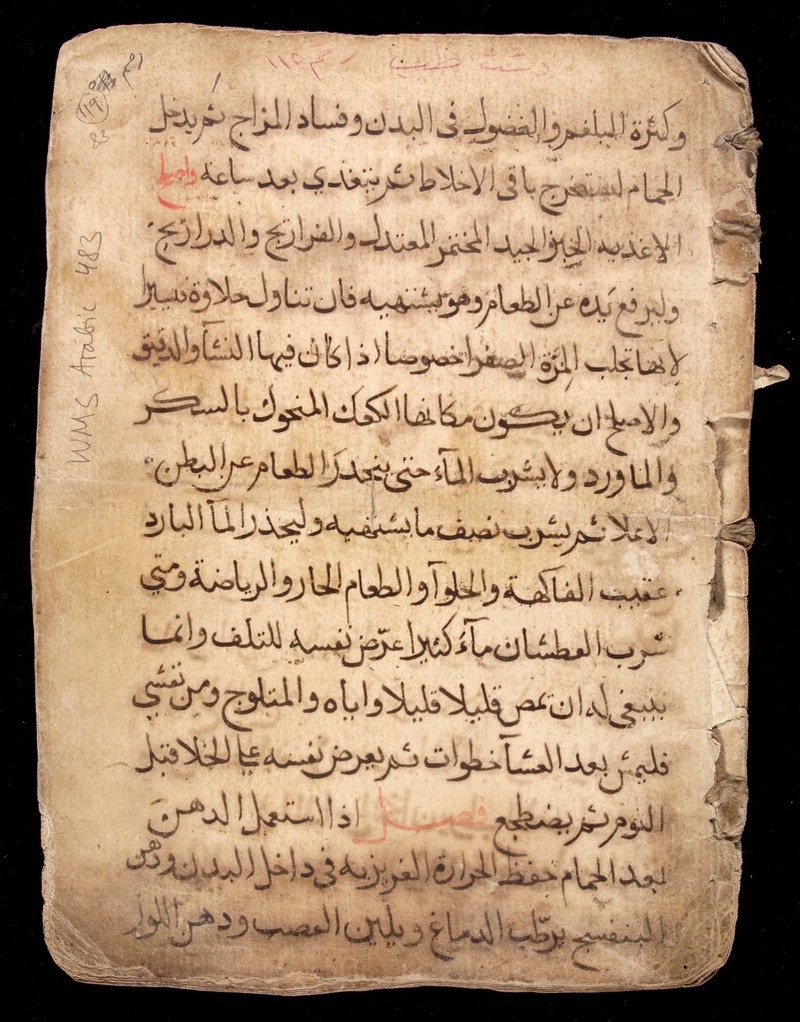 وكثرة البلغم والفضول فى البدن وفساد المزاج ثم يدخل
الحمام ليستفرج باقى الاخلاط ثم يتغدي بعد ساعه واصلح
الاغذيه الخبز الجيد المختمر المعتدل والفراريج والدراريج
وليرفع يده عن الطعام وهو يشتهيه فان تناول حلاوة فيسيرا
لانها تجلب المرّة الصفرا خصوصا اذا كان فيها النشا والدقيق
والاصلح ان يكون مكانها الكعك المنحول بالسكر
والماورد ولا يشرب المآء حتى ينحدر الطعام عن البطن
الاعلا ثم يشرب نصف ما يشتهيه وليحذر المآ البارد
عقيب الفاكهة والحلوآ والطعام الحار والرياضة ومتي
شرب العطشان مآء كثيرا عرّض نفسه للتلف وانما
ينبغي له ان يمص قليلا قليلا واياه والمثلوج ومن تعشي
فليمش بعد العشآ خطوات ثم يعرض نفسه علي الخلا قبل
النوم ثم يضطجع فصل اذا استعمل الدهن
بعد الحمام حفظ الحرارة الغريزيه فى داخل البدن ودهن
البنفسج يرطّب الدماغ ويلين العصب ودهن اللوز
WMS Arabic 483
١١٩
83